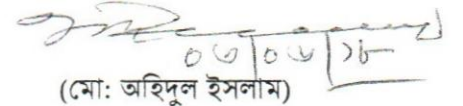 ০৩/০৬/১৮
(মো: অহিদুল ইসলাম)